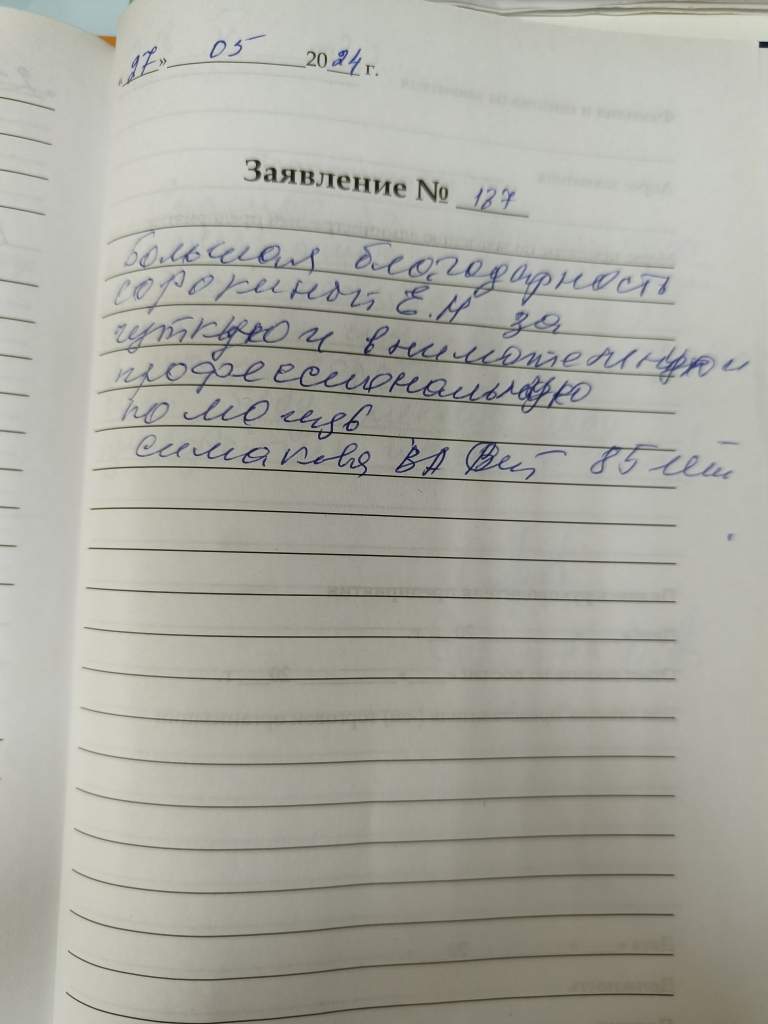 «27» 05 2024 г.
Заявление № 187
Большая благодарность
Сорокиной Е.Н за
чуткую и внимательную и
профессиональную
помощь
Симакова ВА 85 лет